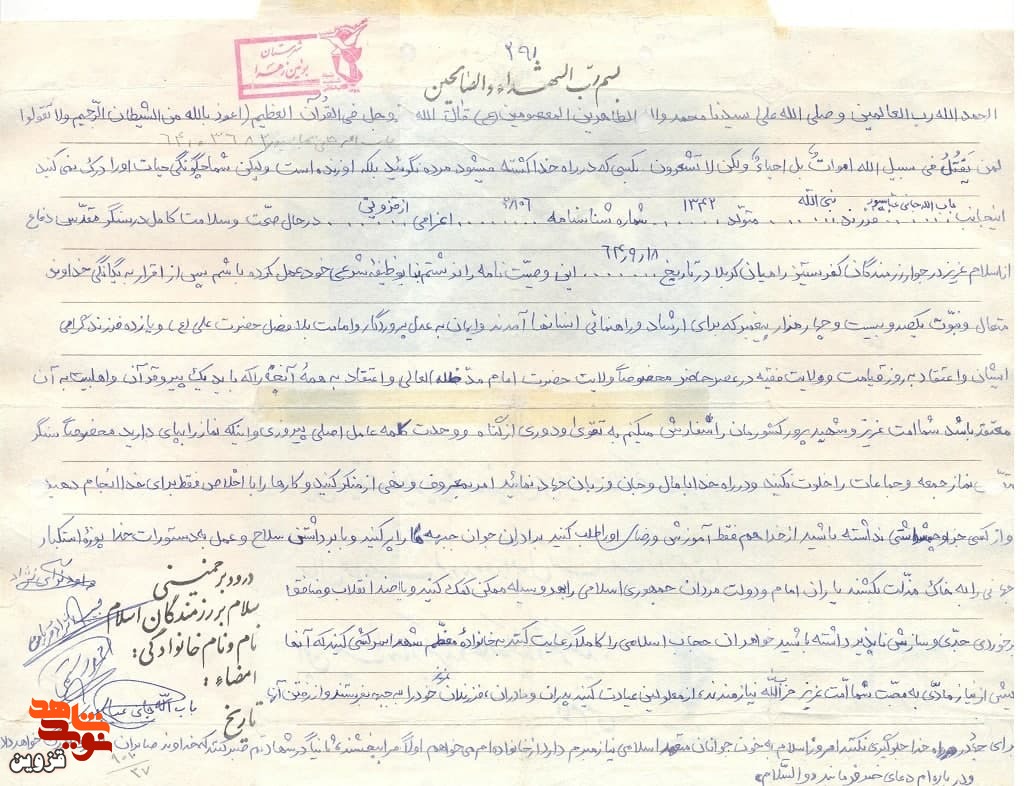 ۲۹۱
شهرستان
بوئین زهرا
بسم ربّ الشهداء والصالحین
الحمد الله رب العالمین وصلی الله علی سیدنا محمد وال الطاهرین المعصومین (ص) قال الله عزوجل فی القرآن العظیم (اعوذ بالله من الشیطان الرجیم ولا تقولوا
لمن یُقتَلُ فی سبیل الله امواتٌ بل احیاءٌ ولکن لا تشعرون بکسی که در راه خدا کشته میشود مرده نگوئید بلکه او زنده است ولیکن شما چگونگی حیات او را درک نمی کنید
اینجانب باب الله حاجی عباسپور فرزند نبی الله متولّد ۱۳۴۲ شماره شناسنامه ۲۸۰۶ اعزامی از قزوین در حال صحّت و سلامت کامل در سنگر مقدّس دفاع
از اسلام عزیز در جوار رزمندگان کفر ستیز را میان کربلا در تاریخ ۶۴٫۹٫۱۸ این وصیّت نامه را نوشتم تا بوظیفه شرعی خود عمل کرده باشم پس از اقرار به یگانگی خداوند
متعال و نبوّت یکصد و بیست و چهار هزار پیغمبر که برای ارشاد و راهنمائی انسانها آمدند و ایمان به عدل پروردگار و امامت بلا فصل حضرت علی (ع) و یازده فرزند گرامی
ایشان و اعتقاد به روز قیامت و ولایت فقیه در عصر حاضر مخصوصاً ولایت حضرت امام مدّ ظله العالی و اعتقاد به همهٔ آنچه را که باید یک پیرو قرآن و اهلبیت به آن
معتقد باشد شما امت عزیز و شهید پرور کشورمان را سفارش میکنم به تقوی و دوری از گناه و وحدت کلمه عامل اصلی پیروزی و اینکه نماز را بپای دارید مخصوصاً سنگر
نماز جمعه و جماعات را خلوت نکنید و در راه خدا با مال و جان و زبان جهاد نمائید امر به معروف و نهی از منکر کنید و کارها را با اخلاص فقط برای خدا انجام دهید
و از کسی جز او چشمداشتی نداشته باشید از خدا هم فقط آمرزش و رضای او را طلب کنید برادران جوان جبهه ها را پر کنید و با برداشتن سلاح و عمل به دستورات خدا پوزهٔ استکبار
جهانی را به خاک مذلّت بکشند یاران امام و دولت مردان جمهوری اسلامی را بهر وسیله ممکن کمک کنید و با ضد انقلاب و منافق
برخوردی جدّی و سازش ناپذیر داشته باشید خواهران حجاب اسلامی را کاملاً رعایت کنند به خانوادهٔ معظّم شهدا سرکشی کنید که آنها
بیش از نیاز مادّی به محبّت شما امّت عزیز حزب الله نیازمندند از معلولین عیادت کنید پدران و مادران عزیز فرزندان خود را به جبهه بفرستند و از رفتن آنها
برای جهاد در راه خدا جلوگیری نکنند امروز اسلام به خون جوانان متعهد اسلامی نیاز مبرم دارد از خانواده ام می خواهم اولاً مرا ببخشند ثانیاً در شهادتم صبر کنند که خداوند صابران خواهد داد
و در باره ام دعای خیر فرمائید والسّلام.
درود بر خمینی
سلام بر رزمندگان اسلام
نام و نام خانوادگی:
امضاء:
باب الله حاجی عباسپور
تاریخ
نوید شاهد
قزوین